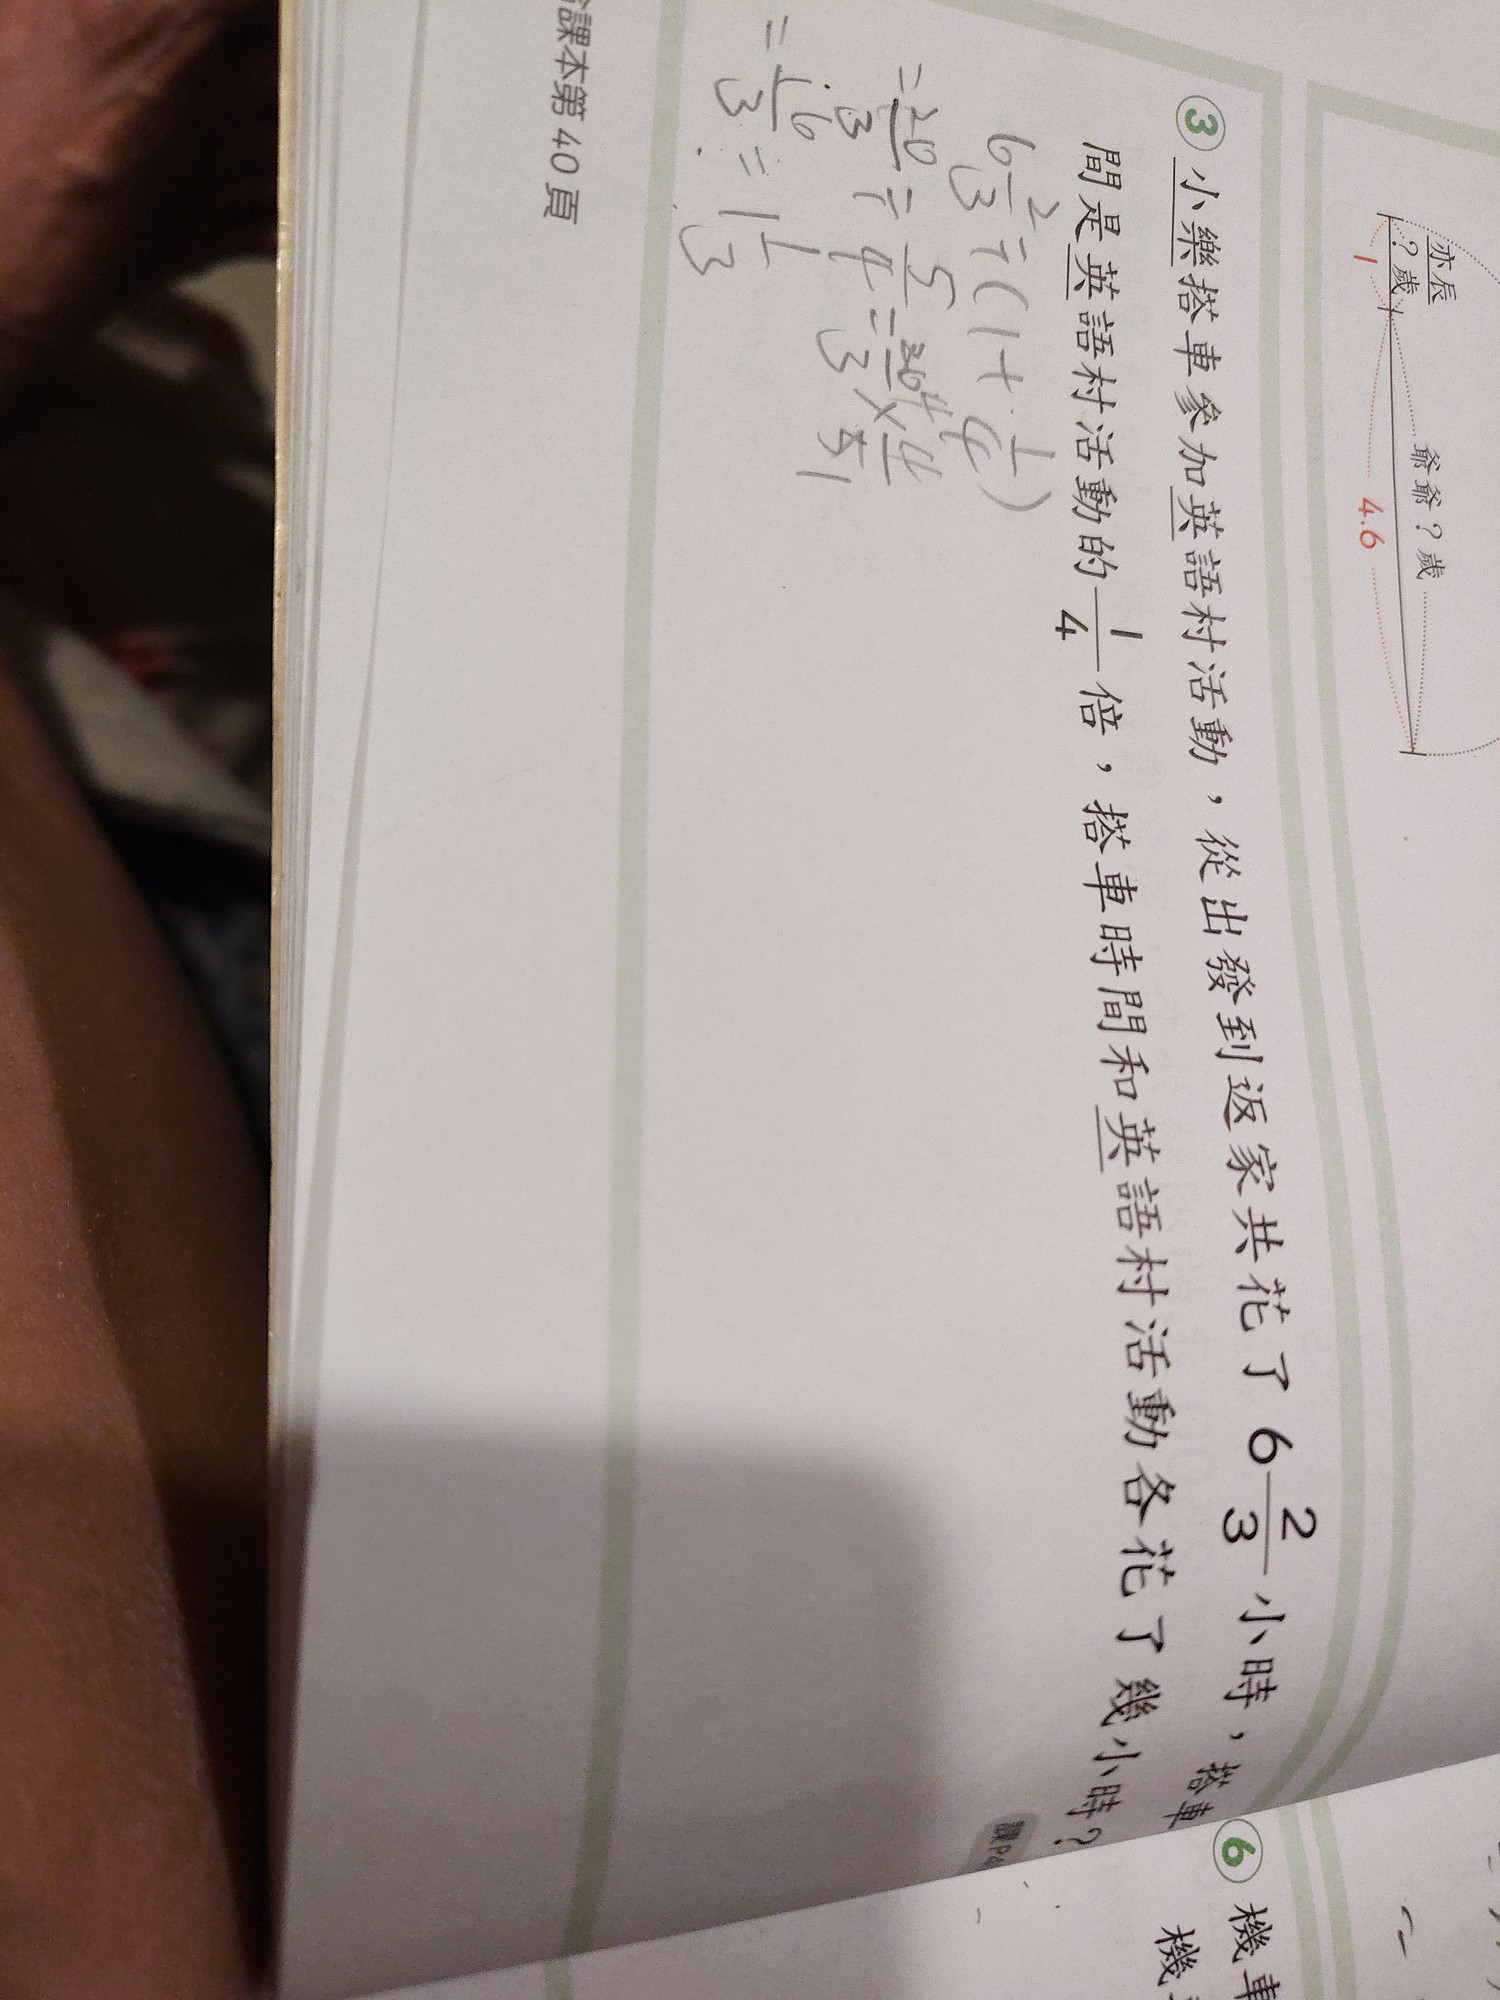 亦辰
?歲
1
爺爺?歲
4.6
③ 小樂搭車參加英語村活動,從出發到返家共花了 6 2/3 小時,搭車
間是英語村活動的 1/4 倍,搭車時間和英語村活動各花了幾小時?
課P4
6 2/3 ÷ (1 + 1/4)
= 20/3 ÷ 5/4 = 20/3 × 4/5
4
1
= 16/3 = 1 1/3
課本第 40 頁
⑥ 機車
機